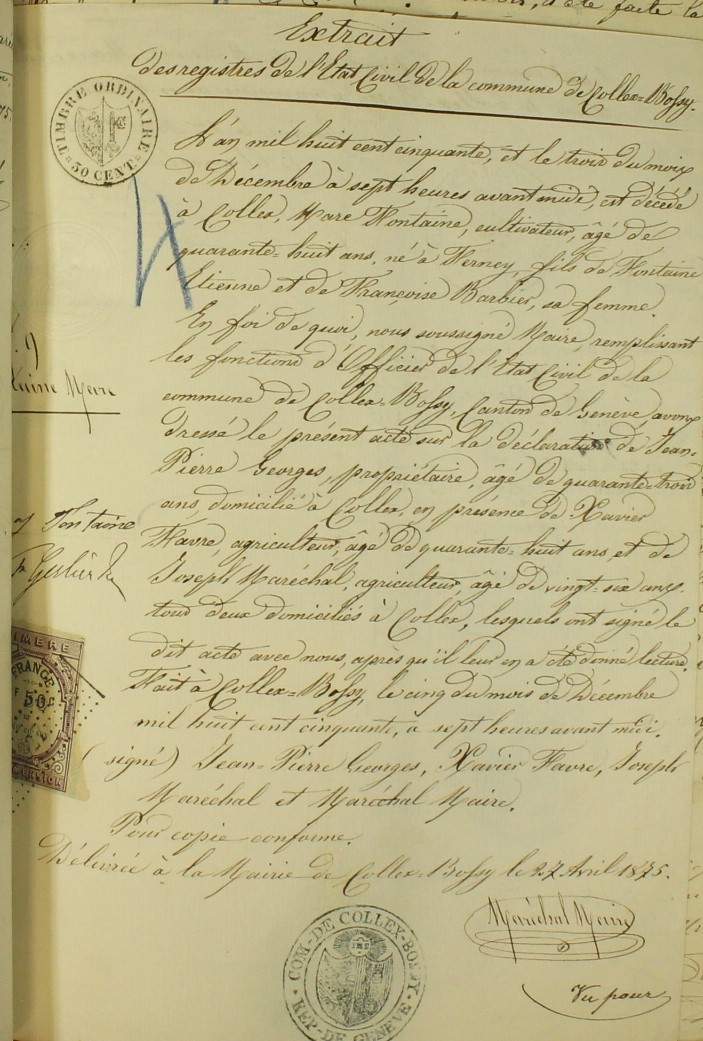 Extrait
des registres de l'Etat Civil de la commune de Collex=Bossy.
TIMBRE ORDINAIRE
50 CENT.
L'an mil huit cent cinquante, et le trois du mois
de Décembre à sept heures avant midi, est décédé
à Collex, Marc Fontaine, cultivateur, âgé de
quarante=huit ans, né à Ferney, fils de Fontaine
Etienne et de Françoise Barbier, sa femme.
En foi de quoi, nous soussigné Maire, remplissant
les fonctions d'Officier de l'Etat Civil de la
commune de Collex-Bossy, Canton de Genève, avons
dressé le présent acte sur la déclaration de Jean-
Pierre Georges, propriétaire, âgé de quarante=trois
ans, domicilié à Collex, en présence de Xavier
Favre, agriculteur, âgé de quarante=huit ans, et de
Joseph Maréchal, agriculteur, âgé de vingt-six ans,
tous deux domiciliés à Collex, lesquels ont signé le
dit acte avec nous, après qu'il leur en a été donné lecture.
Fait à Collex=Bossy, le cinq du mois de Décembre
mil huit cent cinquante, à sept heures avant midi.
(signé) Jean-Pierre Georges, Xavier Favre, Joseph
Maréchal et Maréchal Maire.
Pour copie conforme.
Délivrée à la Mairie de Collex-Bossy le 27 Avril 1875.
Maréchal Maire
COM-DE COLLEX-BOSSY
REP-DE GENÈVE
Vu pour
Fontaine
TIMBRE
FRANCE
50c